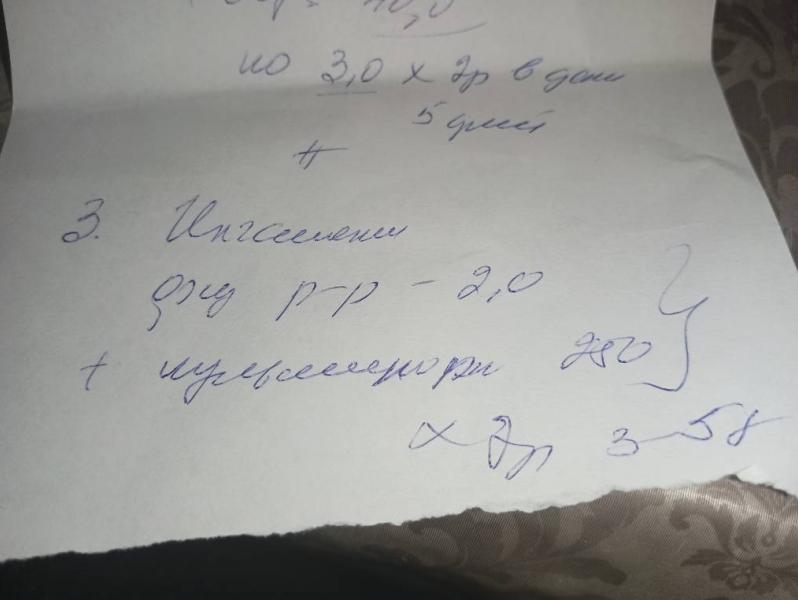 40,0
по 3,0 x 2р в день
5 дней
#
3. Ингаляции
физ р-р - 2,0
+ пульмикорт 250
x 2р 3-5 д